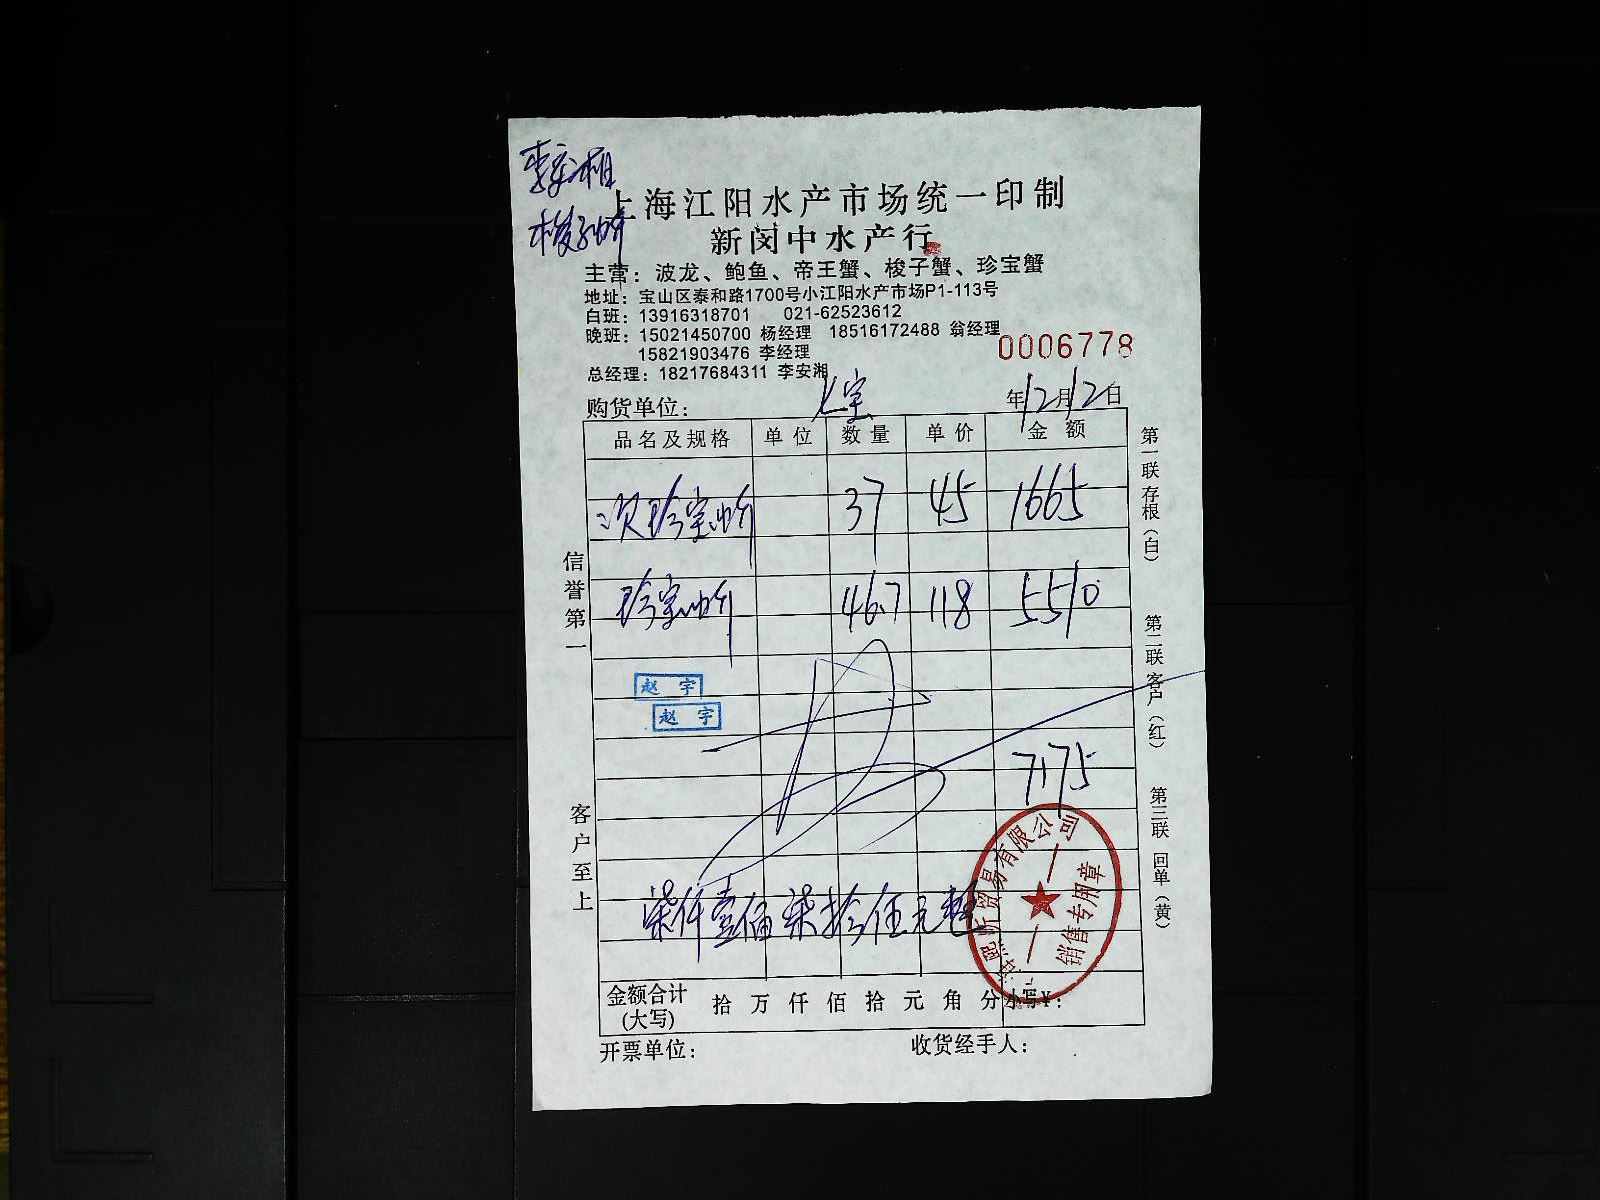 李安湘
梭子蚧
上海江阳水产市场统一印制
新闵中水产行
主营：波龙、鲍鱼、帝王蟹、梭子蟹、珍宝蟹
地址：宝山区泰和路1700号小江阳水产市场P1-113号
白班：13916318701 021-62523612
晚班：15021450700 杨经理 18516172488 翁经理
15821903476 李经理
0006778
总经理：18217684311 李安湘
购货单位： 七宝 年12月12日
品名及规格 单位 数量 单价 金额
次珍宝蚧 37 45 1665
珍宝蚧 46.7 118 5510
赵宇
赵宇
7175
柒仟壹佰柒拾伍元整
金额合计(大写) 拾 万 仟 佰 拾 元 角 分 小写¥：
开票单位： 收货经手人：
信誉第一
客户至上
第一联 存根（白）
第二联 客户（红）
第三联 回单（黄）
贸易有限公司
销售专用章